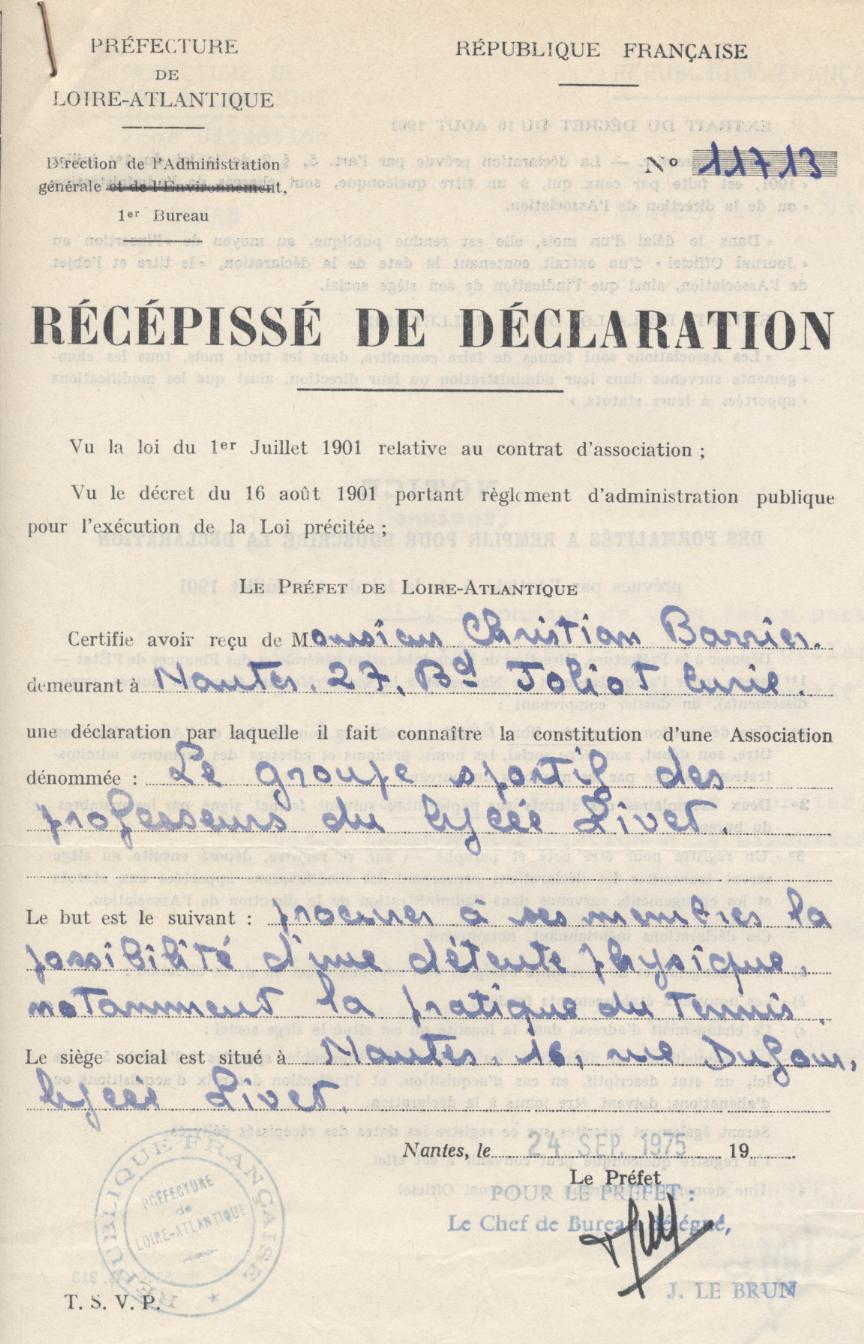 PRÉFECTURE
DE
LOIRE-ATLANTIQUE
RÉPUBLIQUE FRANÇAISE
Direction de l'Administration
générale et de l'Environnement,
1er Bureau
No 11713
RÉCÉPISSÉ DE DÉCLARATION
Vu la loi du 1er Juillet 1901 relative au contrat d'association ;
Vu le décret du 16 août 1901 portant règlement d'administration publique
pour l'exécution de la Loi précitée ;
LE PRÉFET DE LOIRE-ATLANTIQUE
Certifie avoir reçu de Monsieur Christian Barrier.
demeurant à Nantes. 27, Bd Joliot Curie.
une déclaration par laquelle il fait connaître la constitution d'une Association
dénommée : Le groupe sportif des
professeurs du lycée Livet.
Le but est le suivant : procurer à ses membres la
possibilité d'une détente physique,
notamment la pratique du Tennis.
Le siège social est situé à Nantes. 16, rue Dufour,
lycée Livet.
Nantes, le 24 SEP. 1975 19
Le Préfet
POUR LE PRÉFET :
Le Chef de Bureau délégué,
J. LE BRUN
RÉPUBLIQUE FRANÇAISE
PRÉFECTURE
de
LOIRE-ATLANTIQUE
T. S. V. P.